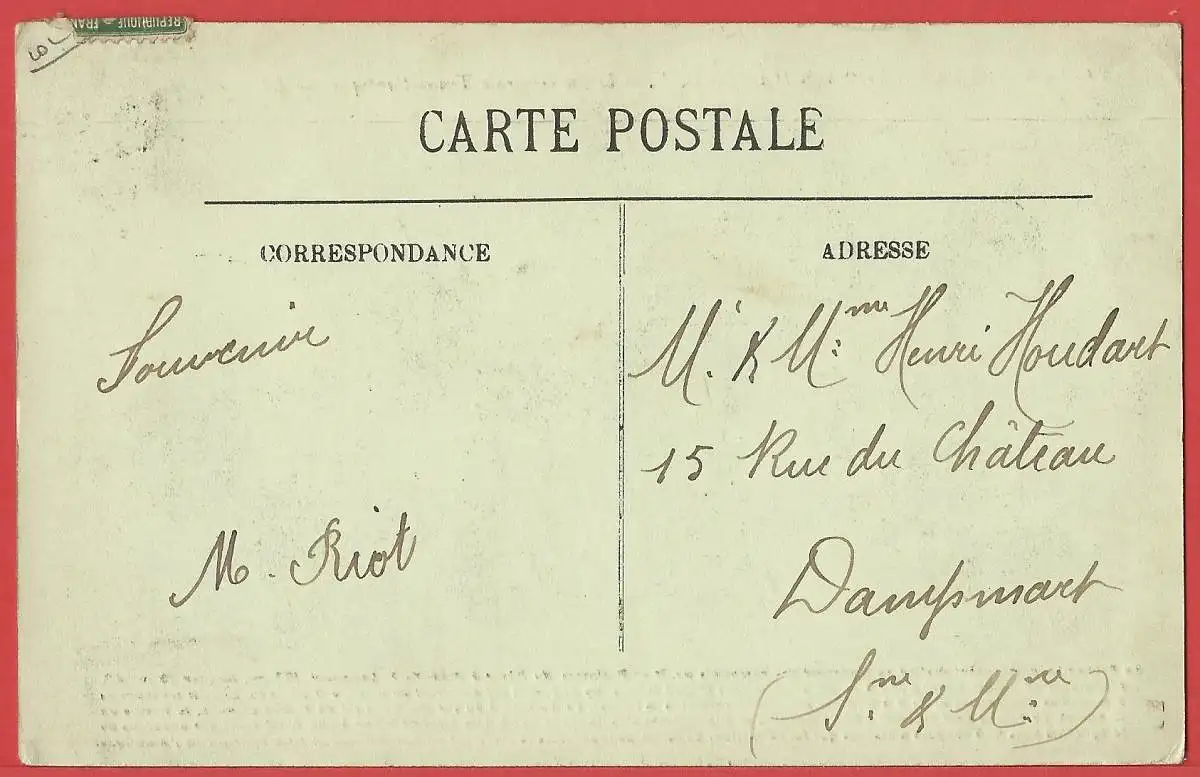 REPUBLIQUE FRAN
CARTE POSTALE
CORRESPONDANCE
Souvenir
M. Riot
ADRESSE
Mr. & Mme: Henri Houdart
15 Rue du Château
Dampmart
(Sne: & Mne:)